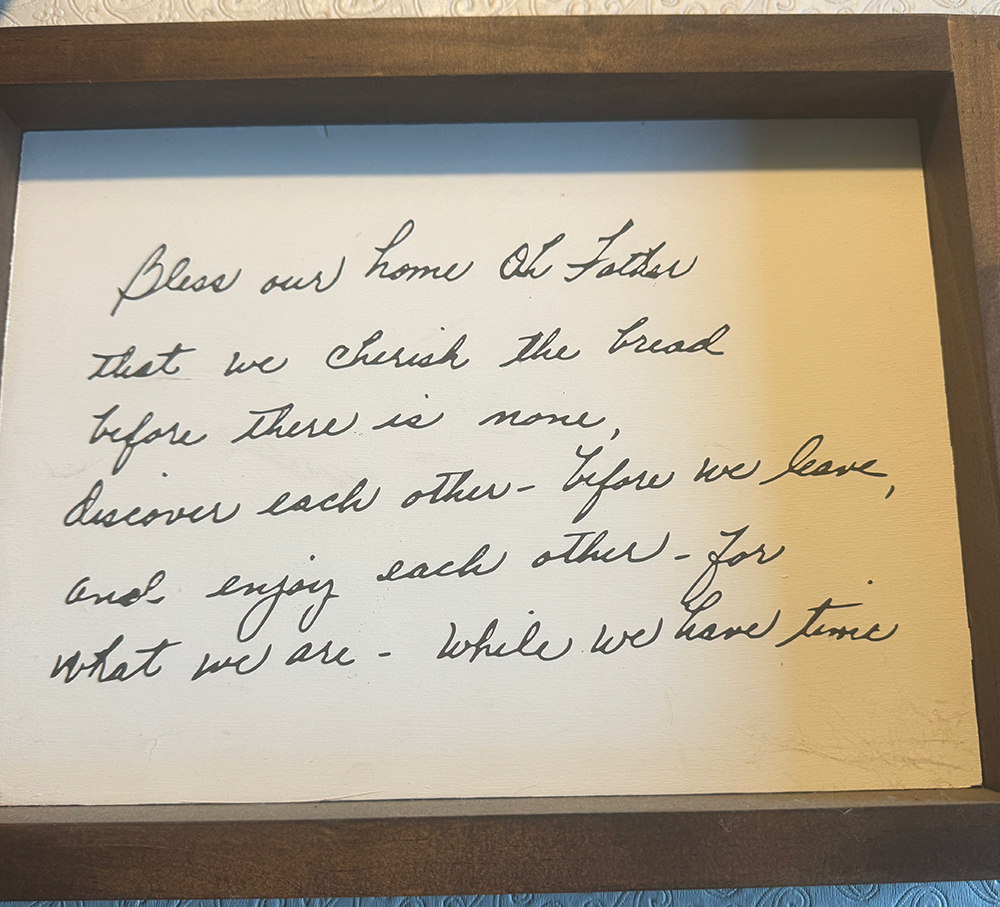 Bless our home Oh Father
that we cherish the bread
before there is none,
discover each other - before we leave,
and enjoy each other - for
what we are - while we have time